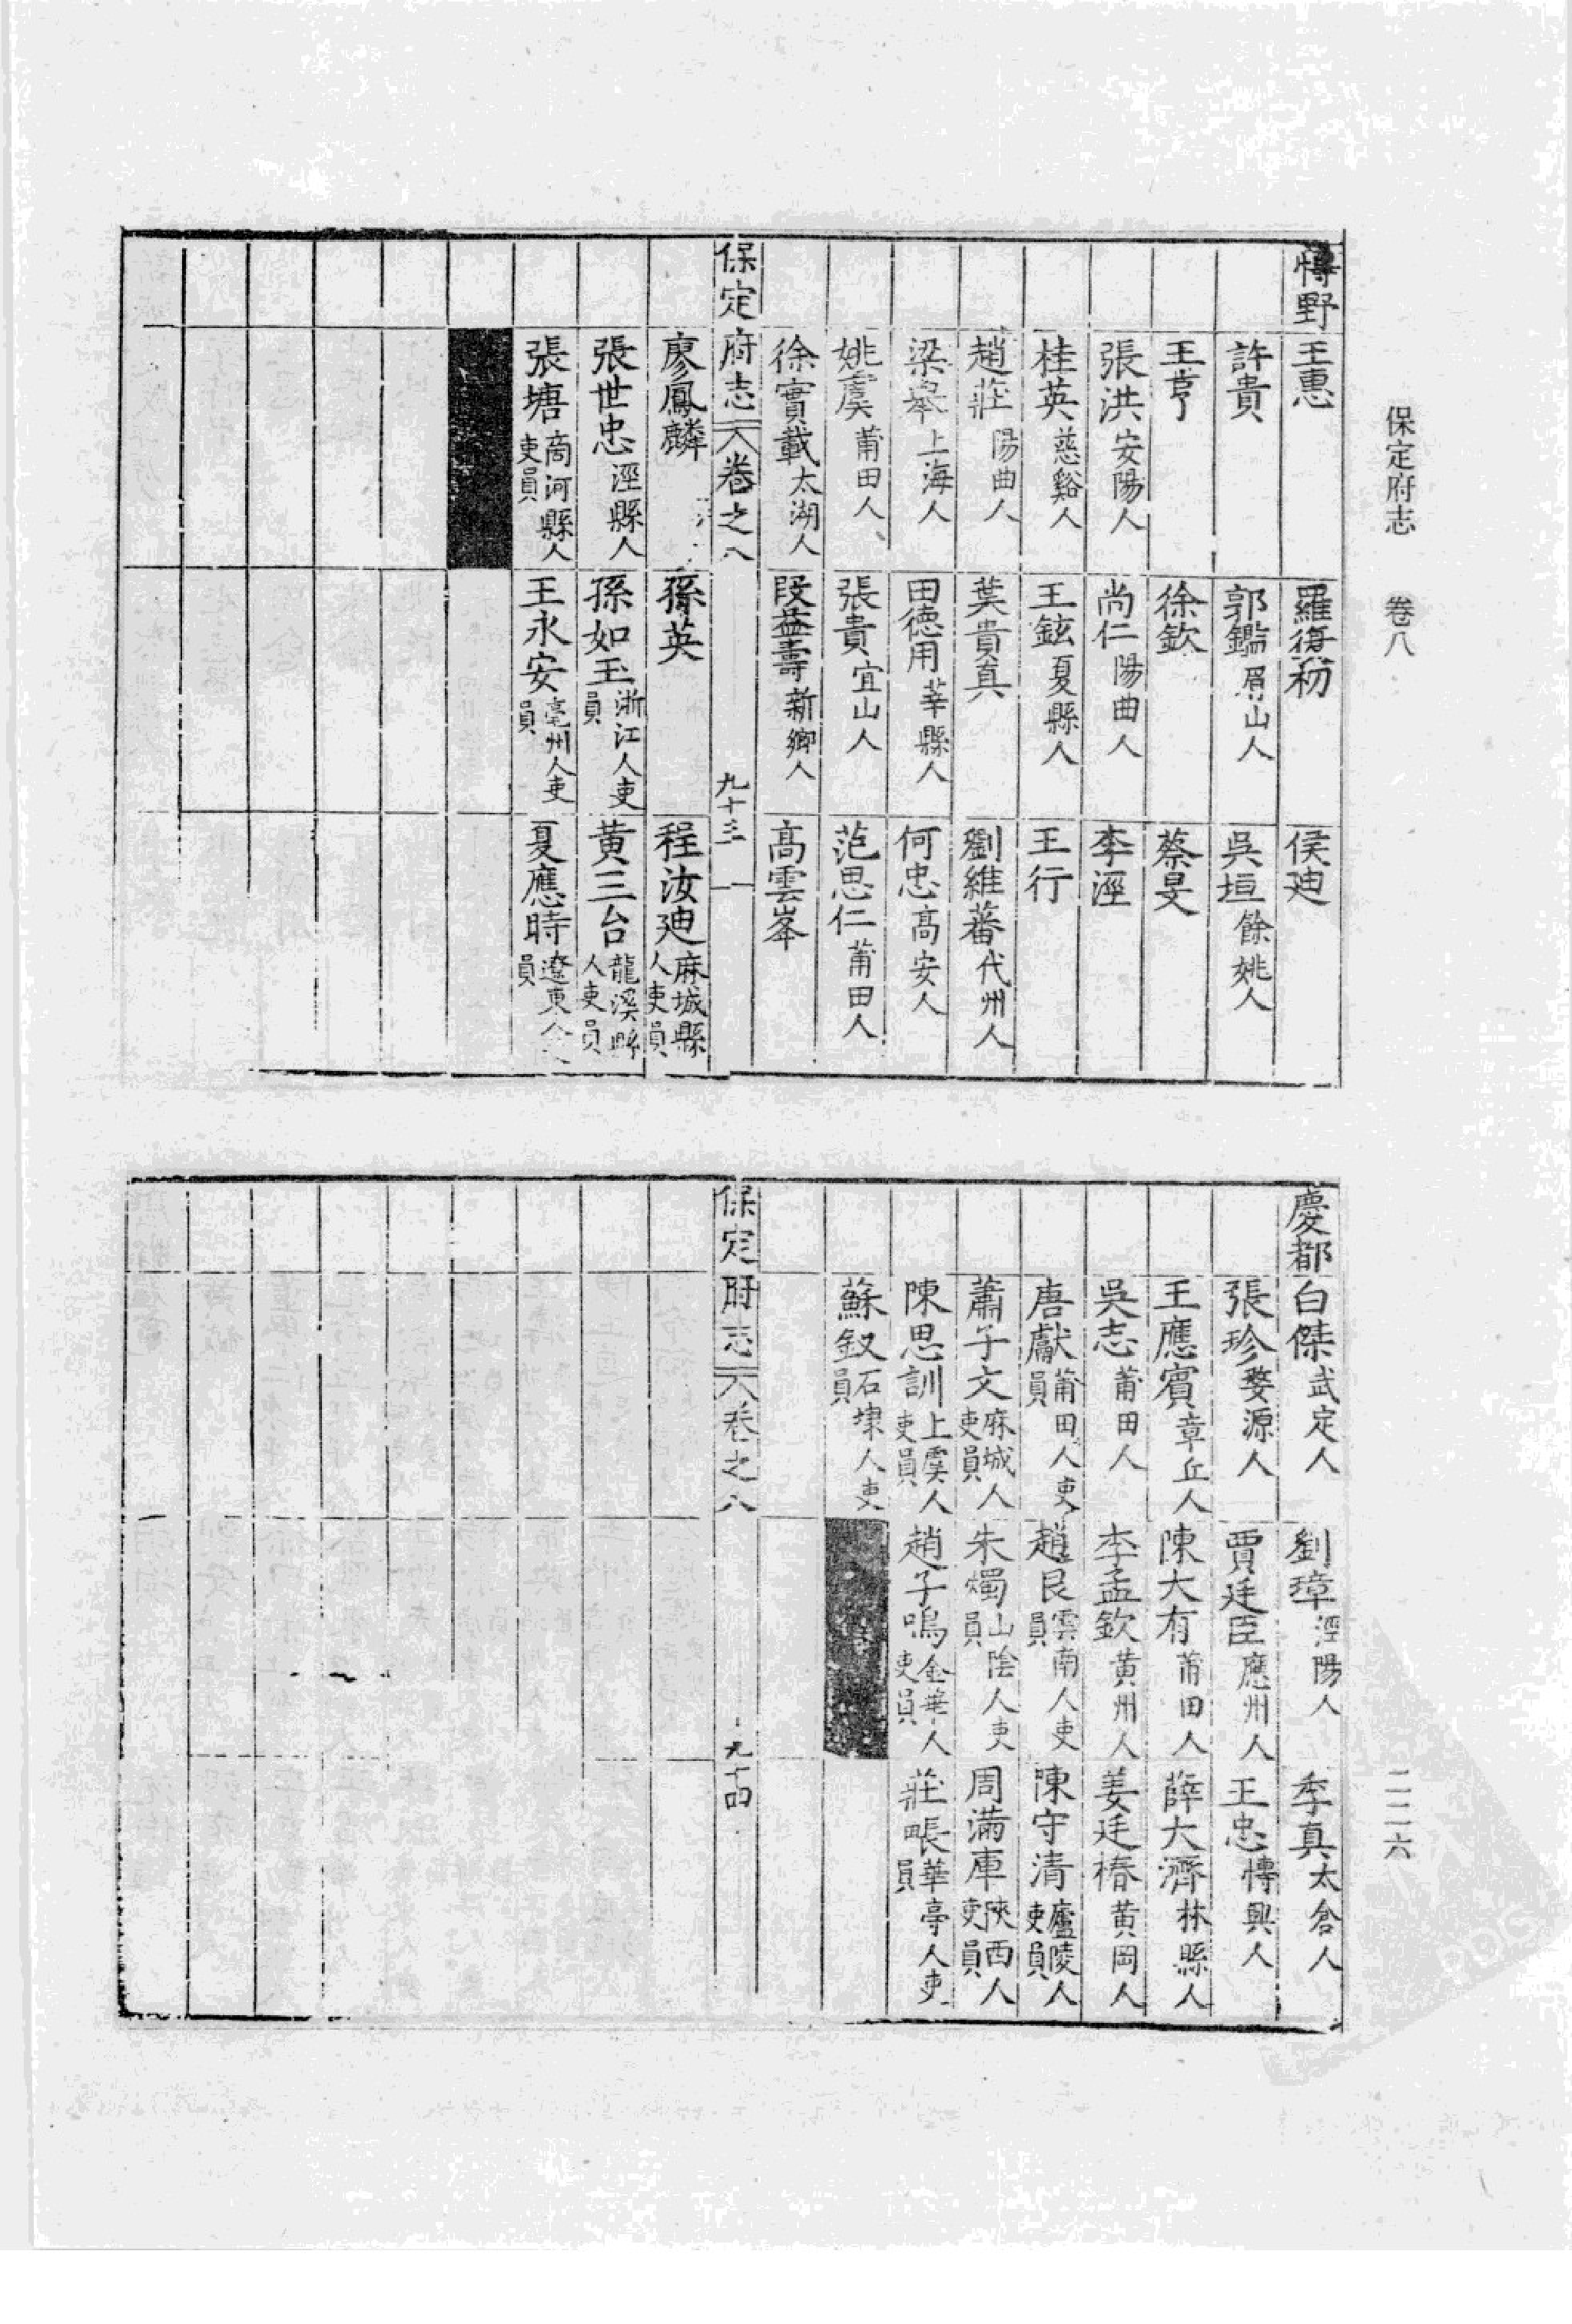 保定府志 卷八
二二六
博野
王惠 羅復初 侯迪
許貴 郭鑑眉山人 吳垣餘姚人
王亨 徐欽 蔡旻
張洪安陽人 尚仁陽曲人 李涇
桂英慈谿人 王鉉夏縣人 王行
趙莊陽曲人 葉貴真 劉維蕃代州人
梁舉上海人 田德用莘縣人 何忠高安人
姚虞莆田人 張貴宜山人 范思仁莆田人
徐實載太湖人 段益壽新鄉人 高雲峯
保定府志 卷之八 九十三
廖鳳麟 孫英 程汝迪麻城縣人吏員
張世忠涇縣人 孫如玉浙江人吏員 黃三台龍溪縣人吏員
張塘商河縣人吏員 王永安亳州人吏員 夏應時遼東人員
慶都
白傑武定人 劉璋涇陽人 季真太倉人
張珍婺源人 賈廷臣應州人 王忠博興人
王應賓章丘人 陳大有莆田人 薛大濟林縣人
吳志莆田人 李孟欽黃州人 姜廷椿黃岡人
唐獻莆田人吏員 趙艮雲南人吏員 陳守清廬陵人吏員
蕭子文麻城人吏員 朱燭山陰人吏員 周滿庫陝西人吏員
陳思訓上虞人吏員 趙子鳴金華人吏員 莊㫤華亭人吏員
蘇釵石埭人吏員
保定府志 卷之八 九十四